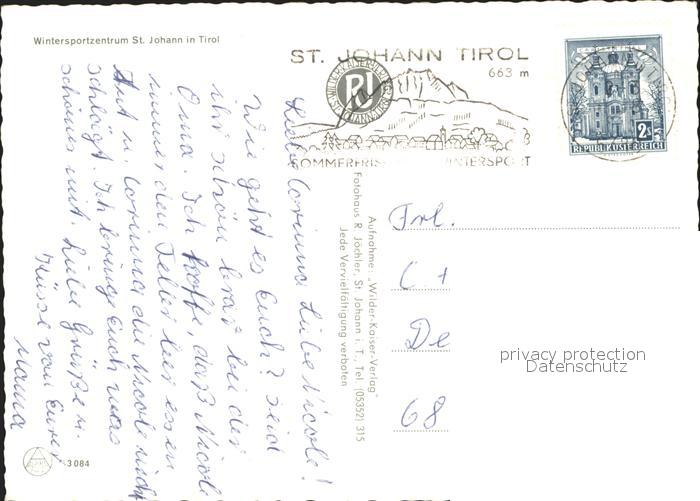 Wintersportzentrum St. Johann in Tirol
ST. JOHANN TIROL
663 m
SOMMERFRIS WINTERSPORT
2S
REPUBLIK ÖSTERREICH
Liebe Corinna Liebe Nicole!
Wie geht es Euch? Seid
ihr schön brav bei der
Oma. Ich hoffe, daß Nicole
immer den Teller leer essen
Hut u Corinna die Nicole nicht
schlägt. Ich bringe Euch was
schönes mit. Liebe Grüße u.
Küsse von Eurer
Mama
Aufnahme: „Wilder-Kaiser-Verlag"
Fotohaus R. Jöchler, St. Johann i. T., Tel. (05352) 315
Jede Vervielfältigung verboten
Frl.
C +
De
68
privacy protection
Datenschutz
3084